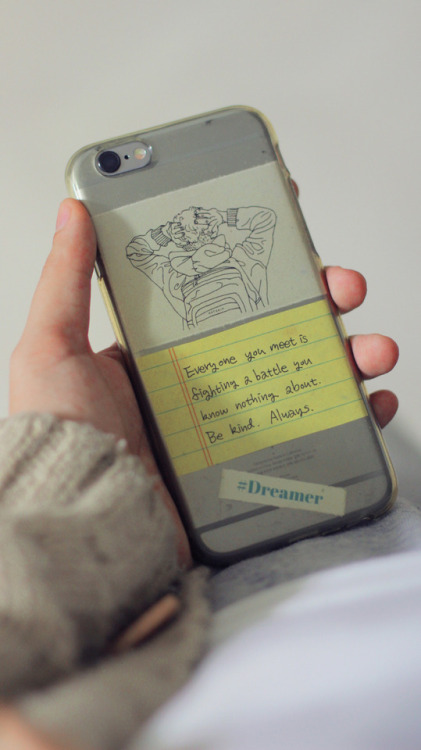 Everyone you meet is
fighting a battle you
know nothing about.
Be kind. Always.
#Dreamer